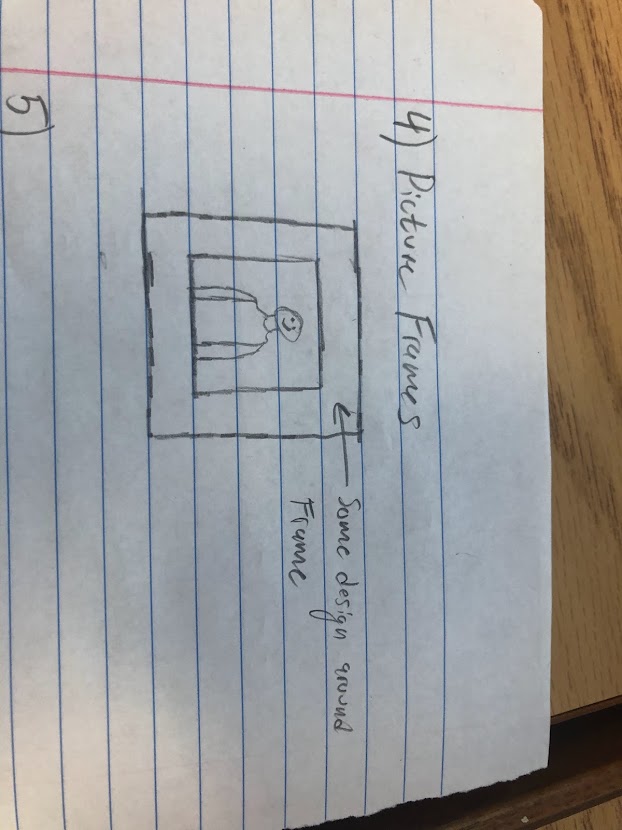 4) Picture Frames
Some design around
Frame
5)